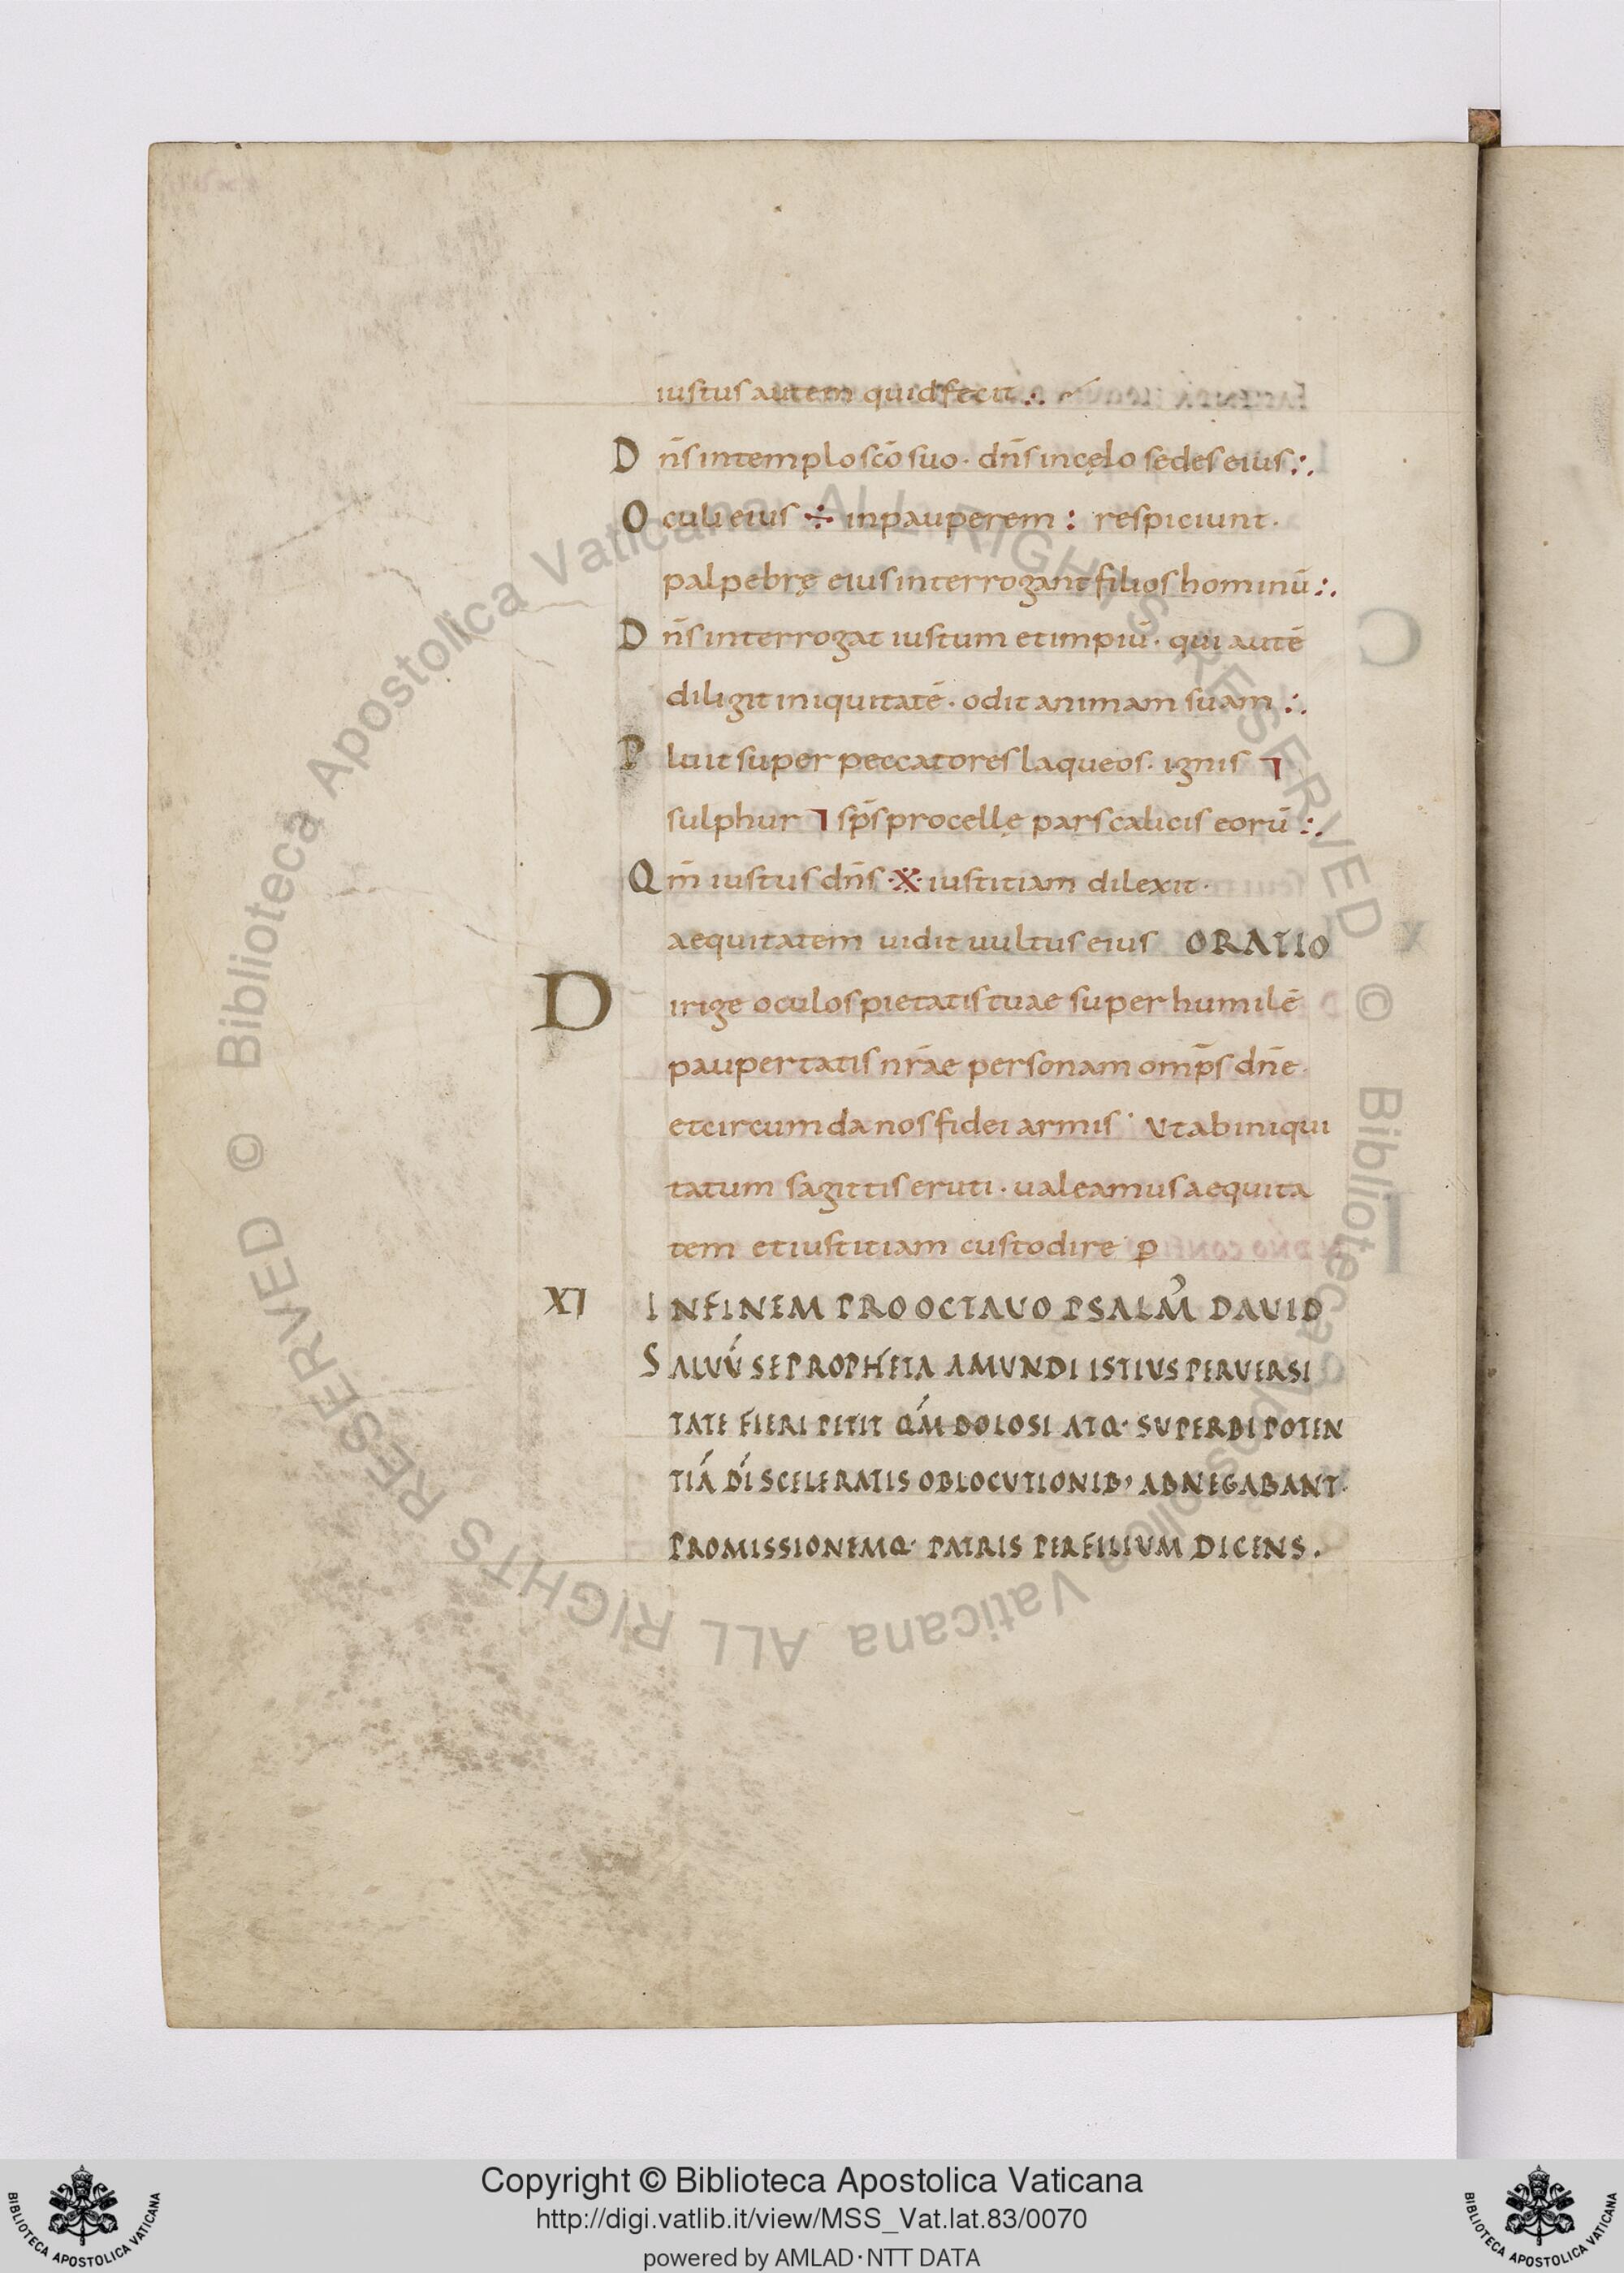 iustus autem quid fecit :.
Dn̄s in templo sc̄o suo · dn̄s in cęlo sedes eius :.
Oculi eius ÷ in pauperem : respiciunt ·
palpebrę eius interrogant filios hominū :.
Dn̄s interrogat iustum et impiū · qui autē
diligit iniquitatē · odit animam suam :.
Pluit super peccatores laqueos · ignis ⁊
sulphur ⁊ sp̄s procellę pars calicis eorū :.
Qm̄ iustus dn̄s ※ iustitiam dilexit ·
aequitatem uidit uultus eius ORATIO
Dirige oculos pietatis tuae super humilē
paupertatis nr̄ae personam omp̄s dn̄e ·
et circumda nos fidei armis · Vt ab iniqui
tatum sagittis eruti · ualeamus aequita
tem et iustitiam custodire p̱
XI IN FINEM PRO OCTAVO PSALM̄ DAVID
SALVŪ SE PROPHETA A MUNDI ISTIUS PERVERSI
TATE FIERI PETIT QM̄ DOLOSI ATQ· SUPERBI POTEN
TIĀ DĪ SCELERATIS OBLOCVTIONIB, ABNEGABANT·
PROMISSIONEMQ· PATRIS PER FILIVM DICENS .
Biblioteca Apostolica Vaticana ALL RIGHTS RESERVED © Biblioteca Apostolica Vaticana ALL RIGHTS RESERVED ©
Copyright © Biblioteca Apostolica Vaticana
http://digi.vatlib.it/view/MSS_Vat.lat.83/0070
powered by AMLAD·NTT DATA
BIBLIOTECA APOSTOLICA VATICANA
BIBLIOTECA APOSTOLICA VATICANA